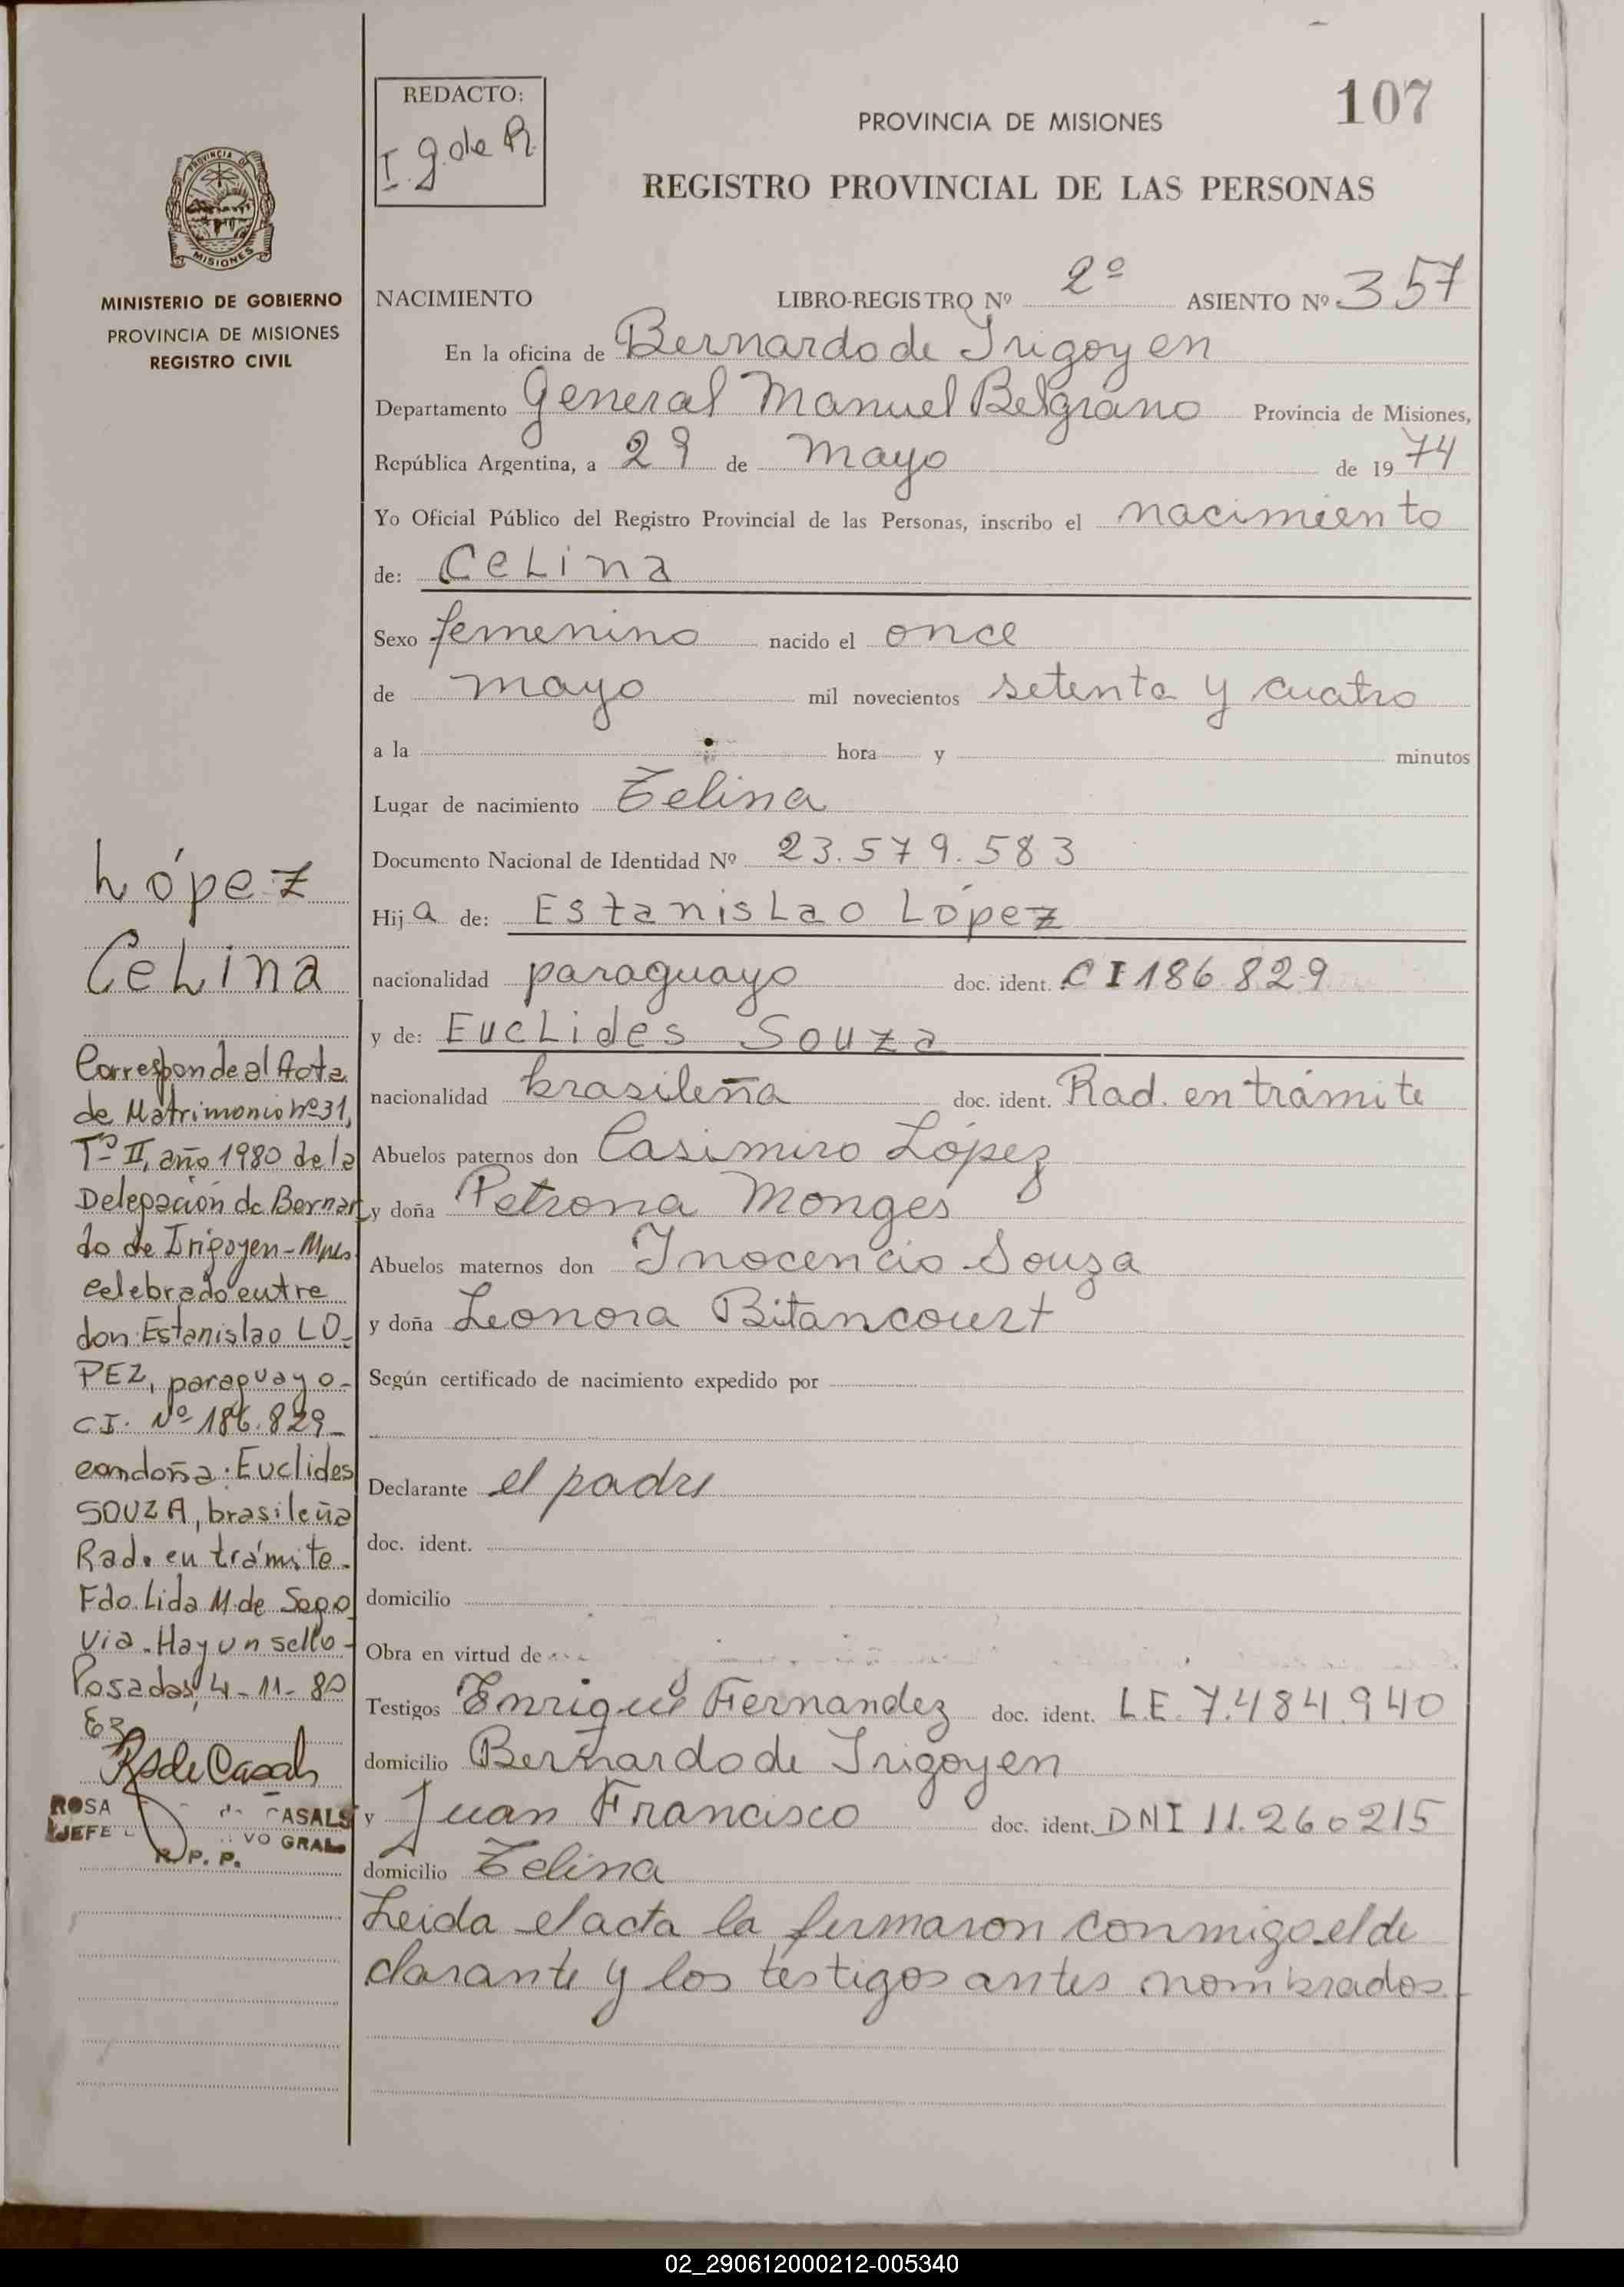 107
REDACTO:
I. g. de R.
PROVINCIA DE MISIONES
REGISTRO PROVINCIAL DE LAS PERSONAS
PROVINCIA DE
MISIONES
MINISTERIO DE GOBIERNO
PROVINCIA DE MISIONES
REGISTRO CIVIL
NACIMIENTO LIBRO-REGISTRO Nº 2º ASIENTO Nº 357
En la oficina de Bernardo de Irigoyen
Departamento General Manuel Belgrano Provincia de Misiones,
República Argentina, a 29 de mayo de 1974
Yo Oficial Público del Registro Provincial de las Personas, inscribo el nacimiento
de: Celina
Sexo femenino nacido el once
de mayo mil novecientos setenta y cuatro
a la hora y minutos
Lugar de nacimiento Zelina
Documento Nacional de Identidad Nº 23.579.583
Hija de: Estanislao López
nacionalidad paraguayo doc. ident. CI 186.829
y de: Euclides Souza
nacionalidad brasileña doc. ident. Rad. en trámite
Abuelos paternos don Casimiro López
y doña Petrona Monges
Abuelos maternos don Inocencio Souza
y doña Leonora Bitancourt
Según certificado de nacimiento expedido por
Declarante el padre
doc. ident.
domicilio
Obra en virtud de
Testigos Enrique Fernandez doc. ident. L.E. 7.484.940
domicilio Bernardo de Irigoyen
y Juan Francisco doc. ident. DNI 11.260215
domicilio Zelina
Leida el acta la firmaron conmigo el de
clarante y los testigos antes nombrados.
López
Celina
Corresponde al Acta
de Matrimonio nº 31,
Tº II, año 1980 de la
Delegación de Bernar
do de Irigoyen - Mnes
celebrado entre
don: Estanislao LO-
PEZ, paraguayo-
C.I. Nº 186.829-
con doña: Euclides
SOUZA, brasileña
Rad. en trámite-
Fdo. Lida M. de Sego
via - Hay un sello-
Posadas, 4-11-80
R de Casals
ROSA CASALS
JEFE VO GRAL
R. P. P.
02_290612000212-005340